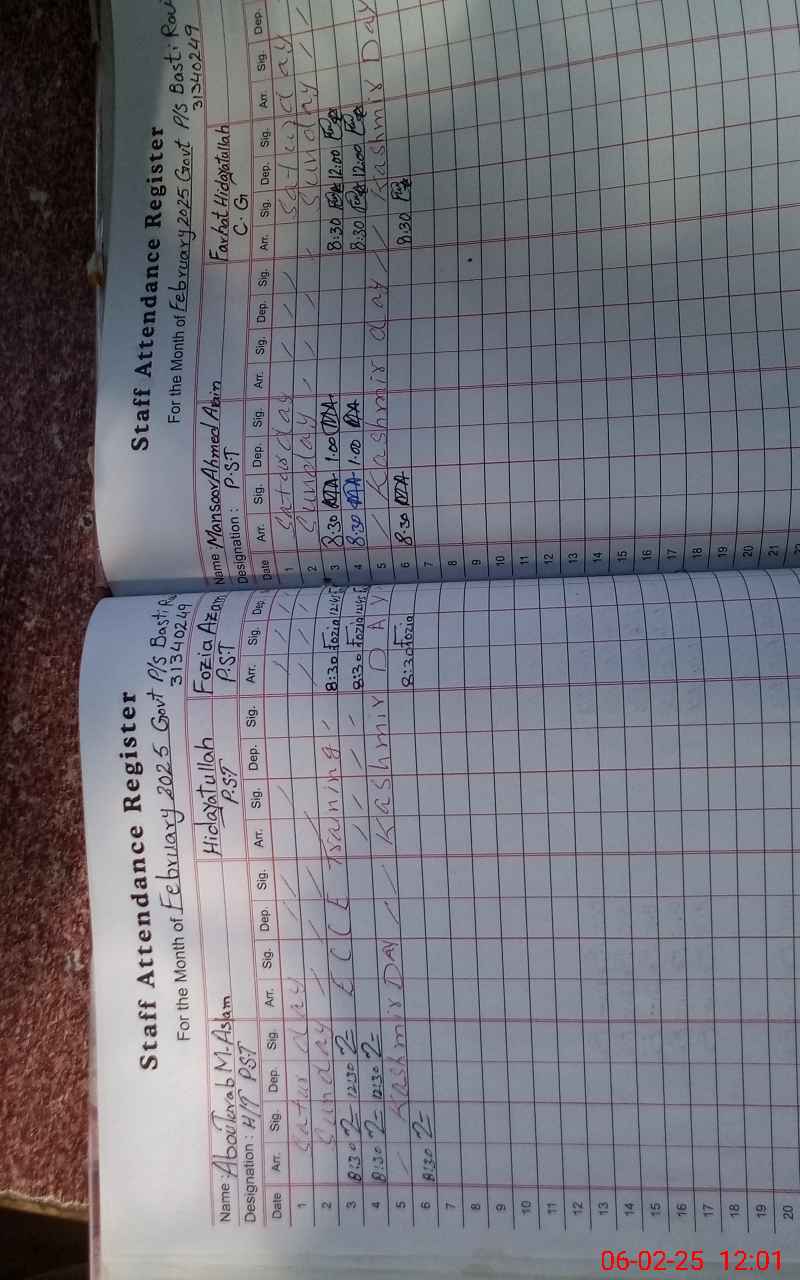 Staff Attendance Register
For the Month of February 2025 Govt P/S Basti
31340249
Name: AbouTurab M. Aslam Hidayatullah Fozia Azam
Designation: H/T PST P.S.T P.S.T
Date Arr. Sig. Dep. Sig. Arr. Sig. Dep. Sig. Arr. Sig. Dep. Sig. Arr. Sig. Dep.
1 Saturday
2 Sunday
3 8:30 12:30 E C C E Training 8:30 Fozia 12:45
4 8:30 12:30 8:30 Fozia 12:45
5 Kashmir DAY Kashmir DAY
6 8:30 8:30 Fozia
7
8
9
10
11
12
13
14
15
16
17
18
19
20
Staff Attendance Register
For the Month of February 2025 Govt P/S Basti
31340249
Name: Mansoor Ahmed Amin Farhat Hidayatullah
Designation: P.S.T C.G
Date Arr. Sig. Dep. Sig. Arr. Sig. Dep. Sig. Arr. Sig. Dep. Sig. Arr. Sig. Dep.
1 Saturday Saturday
2 Sunday Sunday
3 8:30 1:00 8:30 12:00
4 8:30 1:00 8:30 12:00
5 Kashmir day Kashmir Day
6 8:30 8:30
7
8
9
10
11
12
13
14
15
16
17
18
19
20
21
06-02-25 12:01